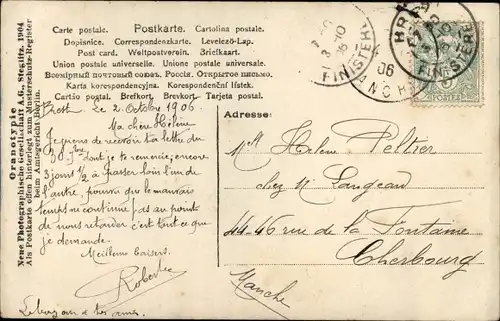 Carte postale. Postkarte. Cartolina postale.
Dopisnice. Correspondenzkarte. Levelező-Lap.
Post card. Weltpostverein. Briefkaart.
Union postale universelle. Unione postale universale.
Всемірный почтовый союзъ. Россія. Открытое письмо.
Karta korespondencyjna. Korespondenční lístek.
Cartão postal. Brefkort. Brevkort. Tarjeta postal.
Brest. Le 2 Octobre 1906.
Ma chère Hélène
Je viens de recevoir ta lettre du
30 7bre dont je te remercie; encore
3 jours 1/2 à passer loin l'un de
l'autre, pourvu que le mauvais
temps ne continue pas au point
de nous retarder c'est tout ce que
je demande.
Meilleurs baisers.
Robert
Adresse:
Mlle Hélène Peltier
chez Mr Langeard
44-46 rue de la Fontaine
Cherbourg
Manche
Oranotypie
Neue Photographische Gesellschaft A.G., Steglitz. 1904
Als Postkarte offen hinterlegt zum Musterschutz-Register
beim Amtsgericht Berlin.
FINISTÈRE
06
FINISTÈRE